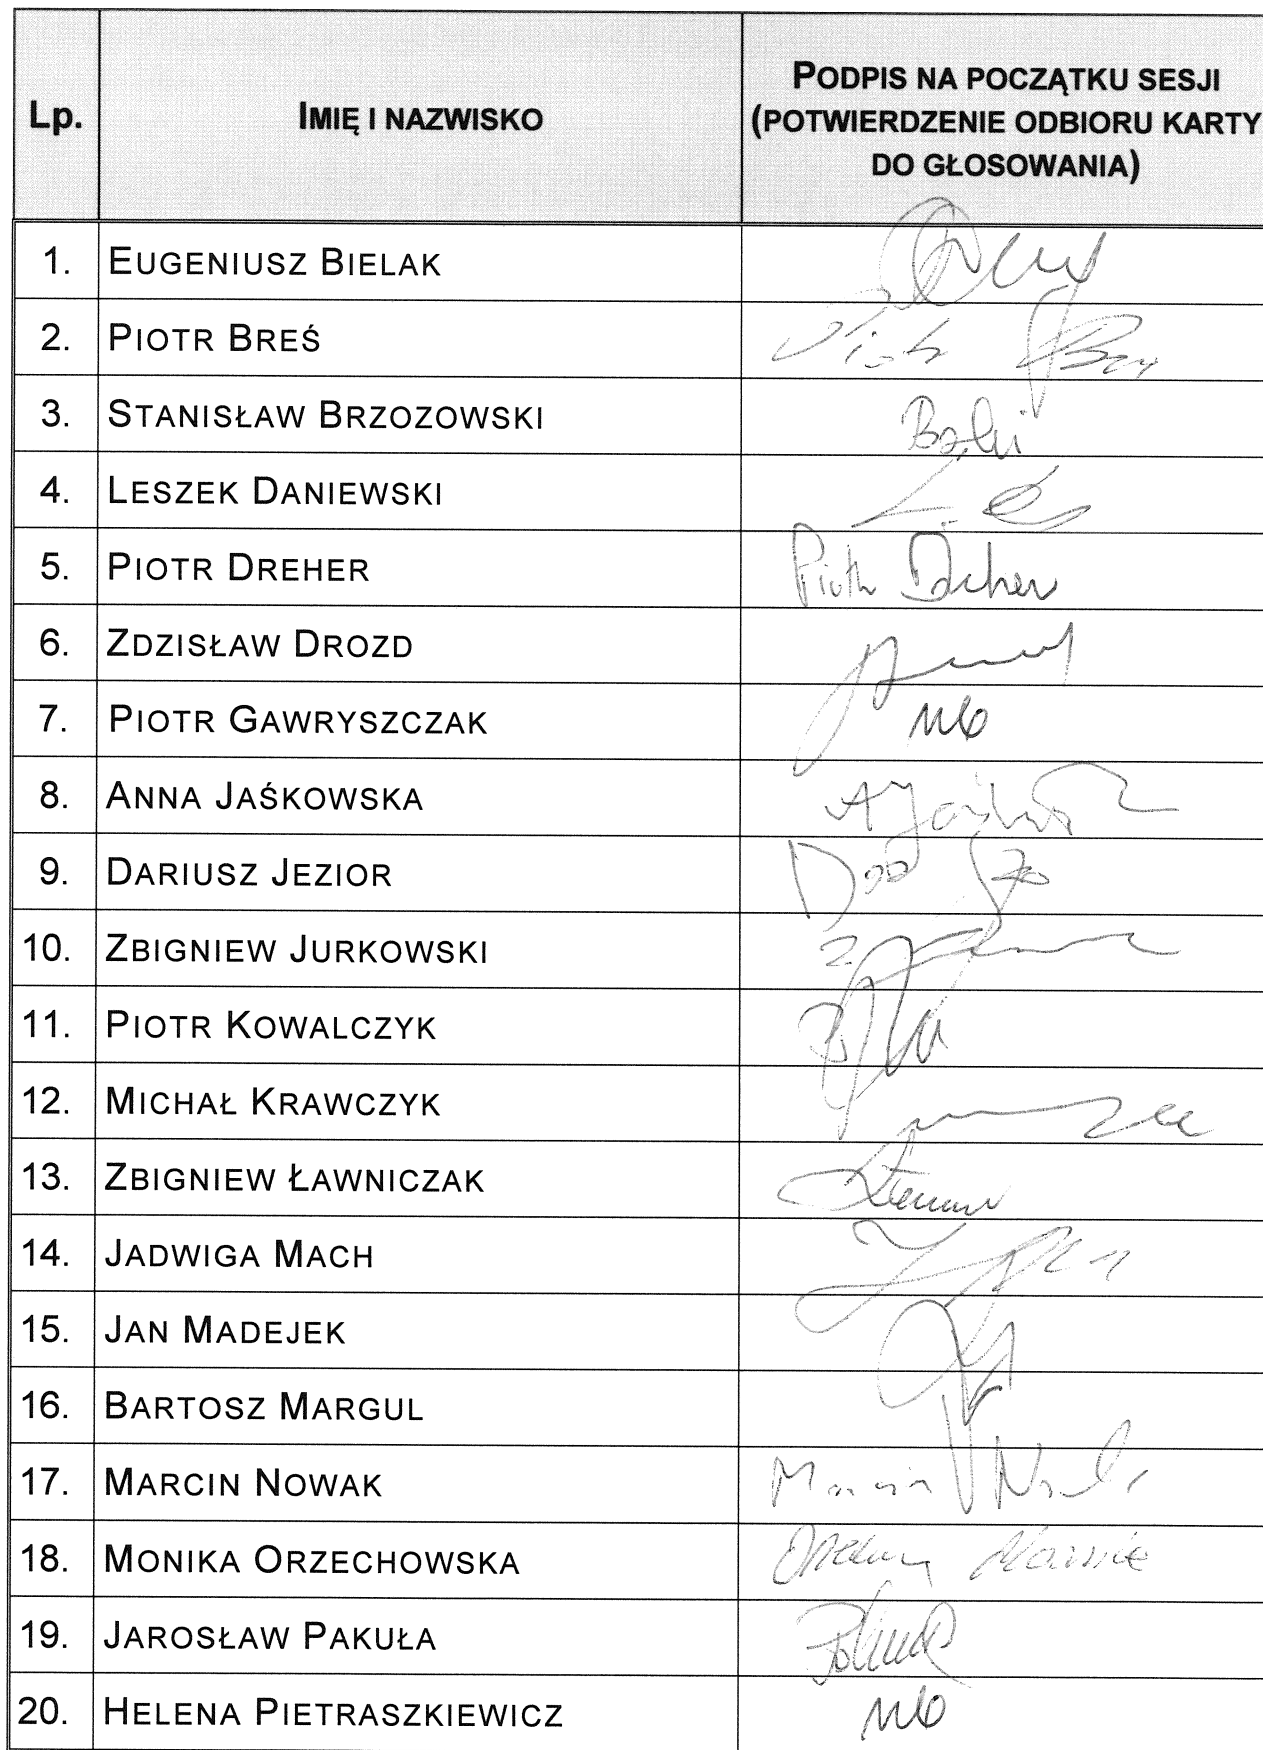 Lp.
IMIĘ I NAZWISKO
PODPIS NA POCZĄTKU SESJI
(POTWIERDZENIE ODBIORU KARTY
DO GŁOSOWANIA)
1. EUGENIUSZ BIELAK
2. PIOTR BREŚ Piotr
3. STANISŁAW BRZOZOWSKI
4. LESZEK DANIEWSKI
5. PIOTR DREHER Piotr Dreher
6. ZDZISŁAW DROZD
7. PIOTR GAWRYSZCZAK
8. ANNA JAŚKOWSKA
9. DARIUSZ JEZIOR
10. ZBIGNIEW JURKOWSKI
11. PIOTR KOWALCZYK
12. MICHAŁ KRAWCZYK
13. ZBIGNIEW ŁAWNICZAK
14. JADWIGA MACH
15. JAN MADEJEK
16. BARTOSZ MARGUL
17. MARCIN NOWAK Marcin Nowak
18. MONIKA ORZECHOWSKA
19. JAROSŁAW PAKUŁA
20. HELENA PIETRASZKIEWICZ